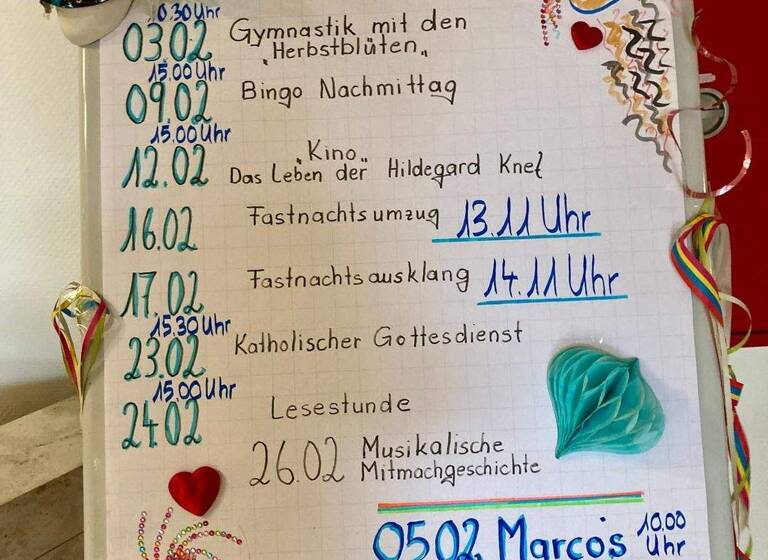 0.30 Uhr
03.02 Gymnastik mit den
"Herbstblüten"
15.00 Uhr
09.02 Bingo Nachmittag
15.00 Uhr
12.02 "Kino"
Das Leben der Hildegard Knef
16.02 Fastnachtsumzug 13.11 Uhr
17.02 Fastnachtsausklang 14.11 Uhr
15.30 Uhr
23.02 Katholischer Gottesdienst
15.00 Uhr
24.02 Lesestunde
26.02 Musikalische
Mitmachgeschichte
05.02. Marco's 10.00
Uhr